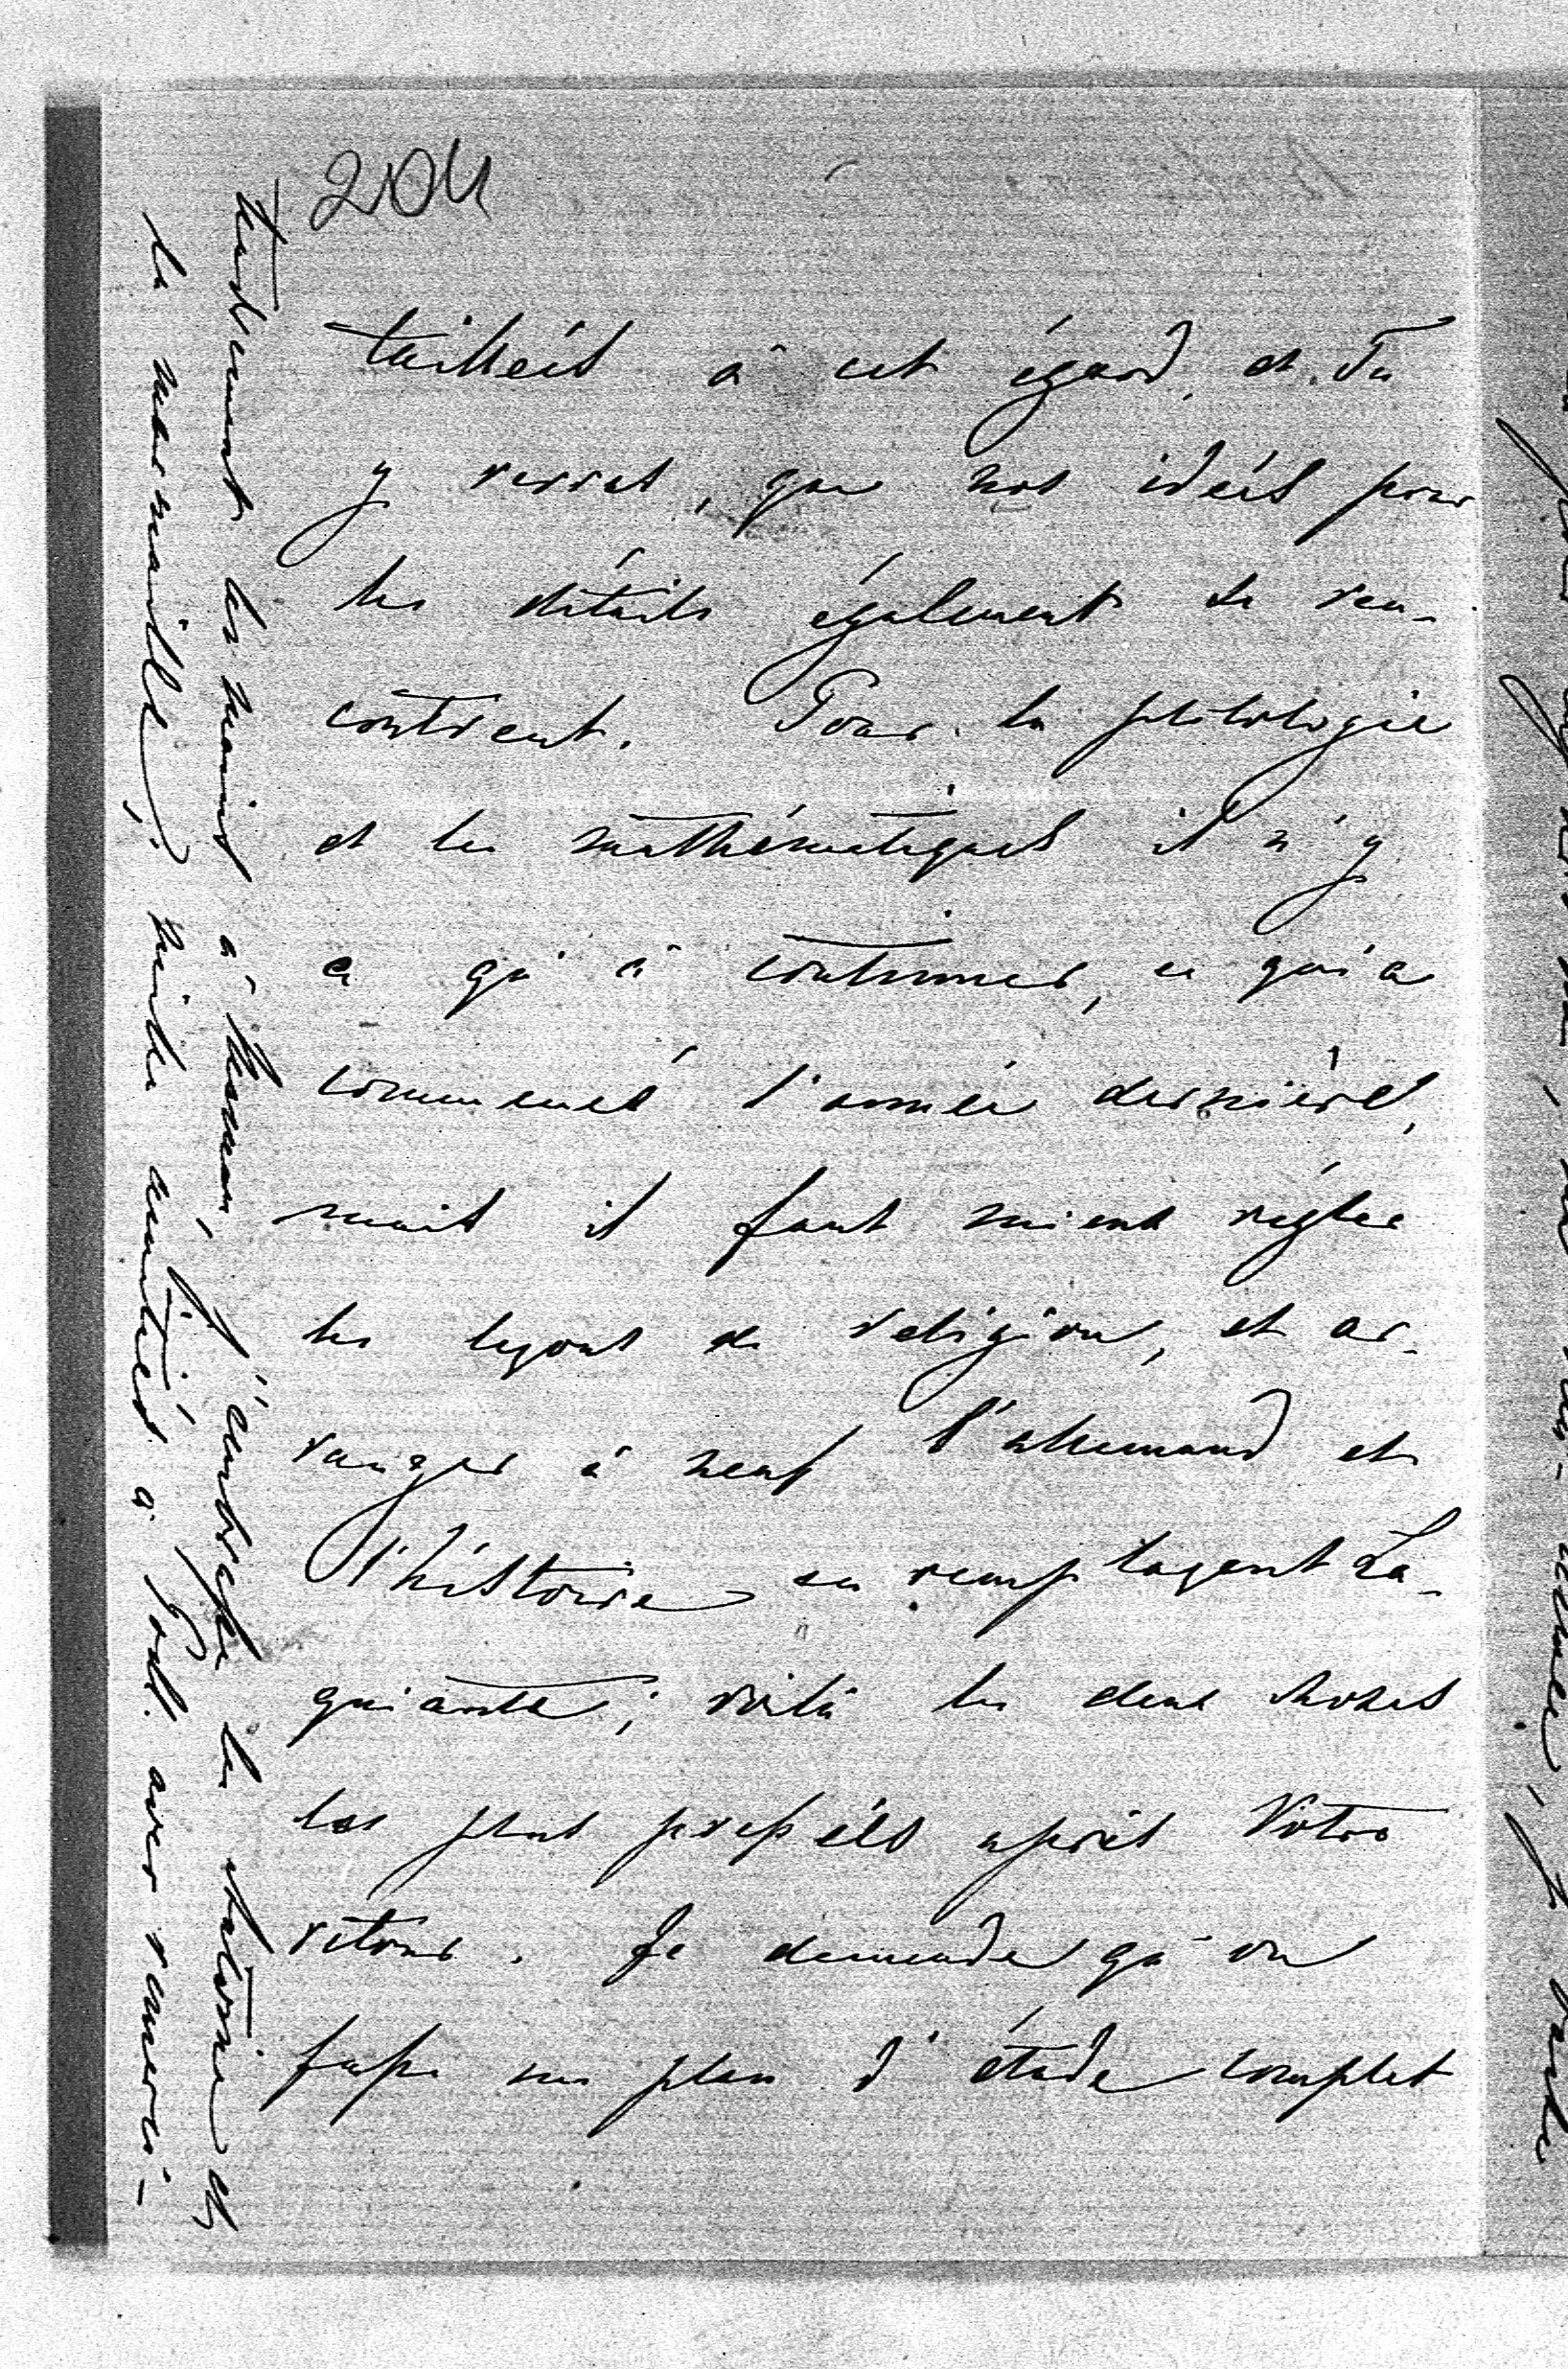 204
taillées à cet égard, et Tu
y verras, que nos idées pour
les détails également se ren-
contrent. Pour la philologie
et les mathématiques il n'y
a qu'à continuer, ce qui a
commencé l'année dernière,
mais il faut mieux régler
les leçons de religion, et ar-
ranger à neuf l'allemand et
l'histoire en remplaçant La-
quiante; voilà les deux choses
les plus pressées après Votre
retour. Je demande qu'on
fasse un plan d'étude complet
tendrement les mains à Maman, j'embrasse la et
la marmaille; mille amitiés à avec